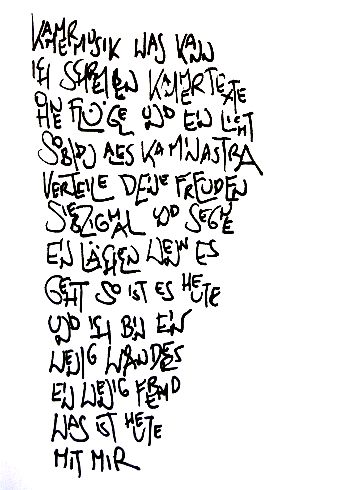 KAMMERMUSIK WAS KANN
ICH SCHREIBEN KAMMERTEXTE
OHNE FLÜGE UND EIN LICHT
SOBIDU ALS KAMINASTRA
VERTEILE DEINE FREUDEN
SIEBZIGMAL UND SEGNE
EIN LÄCHELN WENN ES
GEHT SO IST ES HEUTE
UND ICH BIN EIN
WENIG
EIN WENIG FREMD
WAS IST HEUTE
MIT MIR